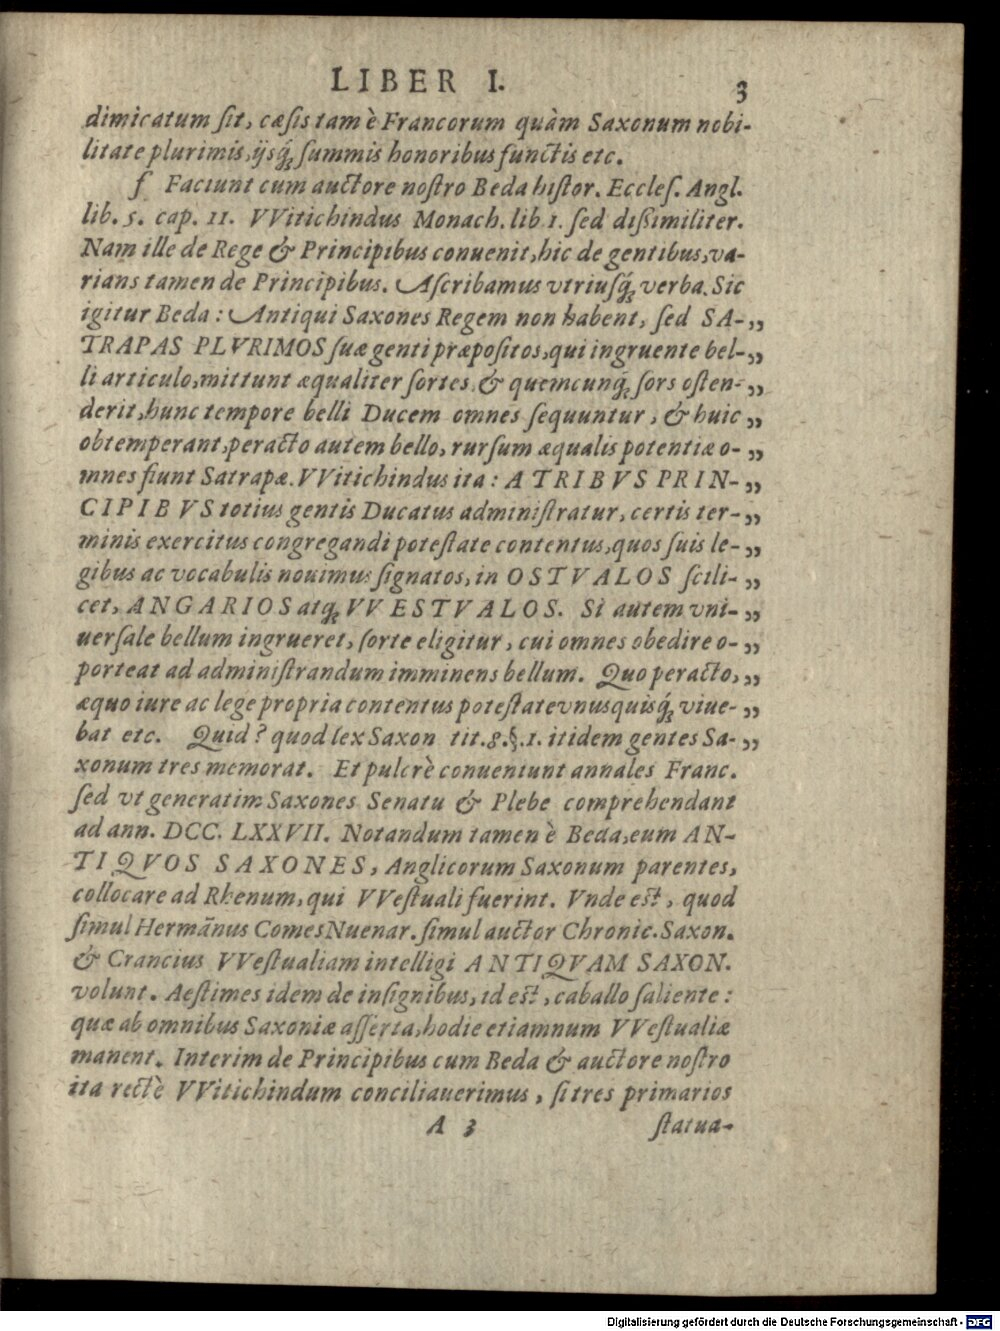 LIBER I. 3
dimicatum ſit, cæſis tam è Francorum quàm Saxonum nobi-
litate plurimis, ijsq́; ſummis honoribus functis etc.
f Faciunt cum auctore noſtro Beda hiſtor. Eccleſ. Angl.
lib. 5. cap. 11. VVitichindus Monach. lib 1. ſed dißimiliter.
Nam ille de Rege & Principibus conuenit, hic de gentibus, va-
rians tamen de Principibus. Aſcribamus vtriuſq́; verba. Sic
igitur Beda: Antiqui Saxones Regem non habent, ſed SA- „
TRAPAS PLVRIMOS ſuæ genti præpoſitos, qui ingruente bel- „
li articulo, mittunt æqualiter ſortes, & quemcunq́; ſors oſten- „
derit, hunc tempore belli Ducem omnes ſequuntur, & huic „
obtemperant, peracto autem bello, rurſum æqualis potentiæ o- „
mnes fiunt Satrapæ. VVitichindus ita: A TRIBVS PRIN- „
CIPIBVS totius gentis Ducatus adminiſtratur, certis ter- „
minis exercitus congregandi poteſtate contentus, quos ſuis le- „
gibus ac vocabulis nouimus ſignatos, in OSTVALOS ſcili- „
cet, ANGARIOS atq́; VVESTVALOS. Si autem vni- „
uerſale bellum ingrueret, ſorte eligitur, cui omnes obedire o- „
porteat ad adminiſtrandum imminens bellum. Quo peracto, „
æquo iure ac lege propria contentus poteſtate vnusquisq́; viue- „
bat etc. Quid? quod lex Saxon tit. 8. §. 1. itidem gentes Sa- „
xonum tres memorat. Et pulcrè conueniunt annales Franc.
ſed vt generatim Saxones Senatu & Plebe comprehendant
ad ann. DCC. LXXVII. Notandum tamen è Beda, eum AN-
TIQVOS SAXONES, Anglicorum Saxonum parentes,
collocare ad Rhenum, qui VVeſtuali fuerint. Vnde eſt, quod
ſimul Herma͂nus Comes Nuenar. ſimul auctor Chronic. Saxon.
& Crancius VVeſtualiam intelligi ANTIQVAM SAXON.
volunt. Aeſtimes idem de inſignibus, id eſt, caballo ſaliente:
quæ ab omnibus Saxoniæ aſſerta, hodie etiamnum VVeſtualiæ
manent. Interim de Principibus cum Beda & auctore noſtro
ita rectè VVitichindum conciliauerimus, ſi tres primarios
A 3 ſtatua-
Digitalisierung gefördert durch die Deutsche Forschungsgemeinschaft - DFG